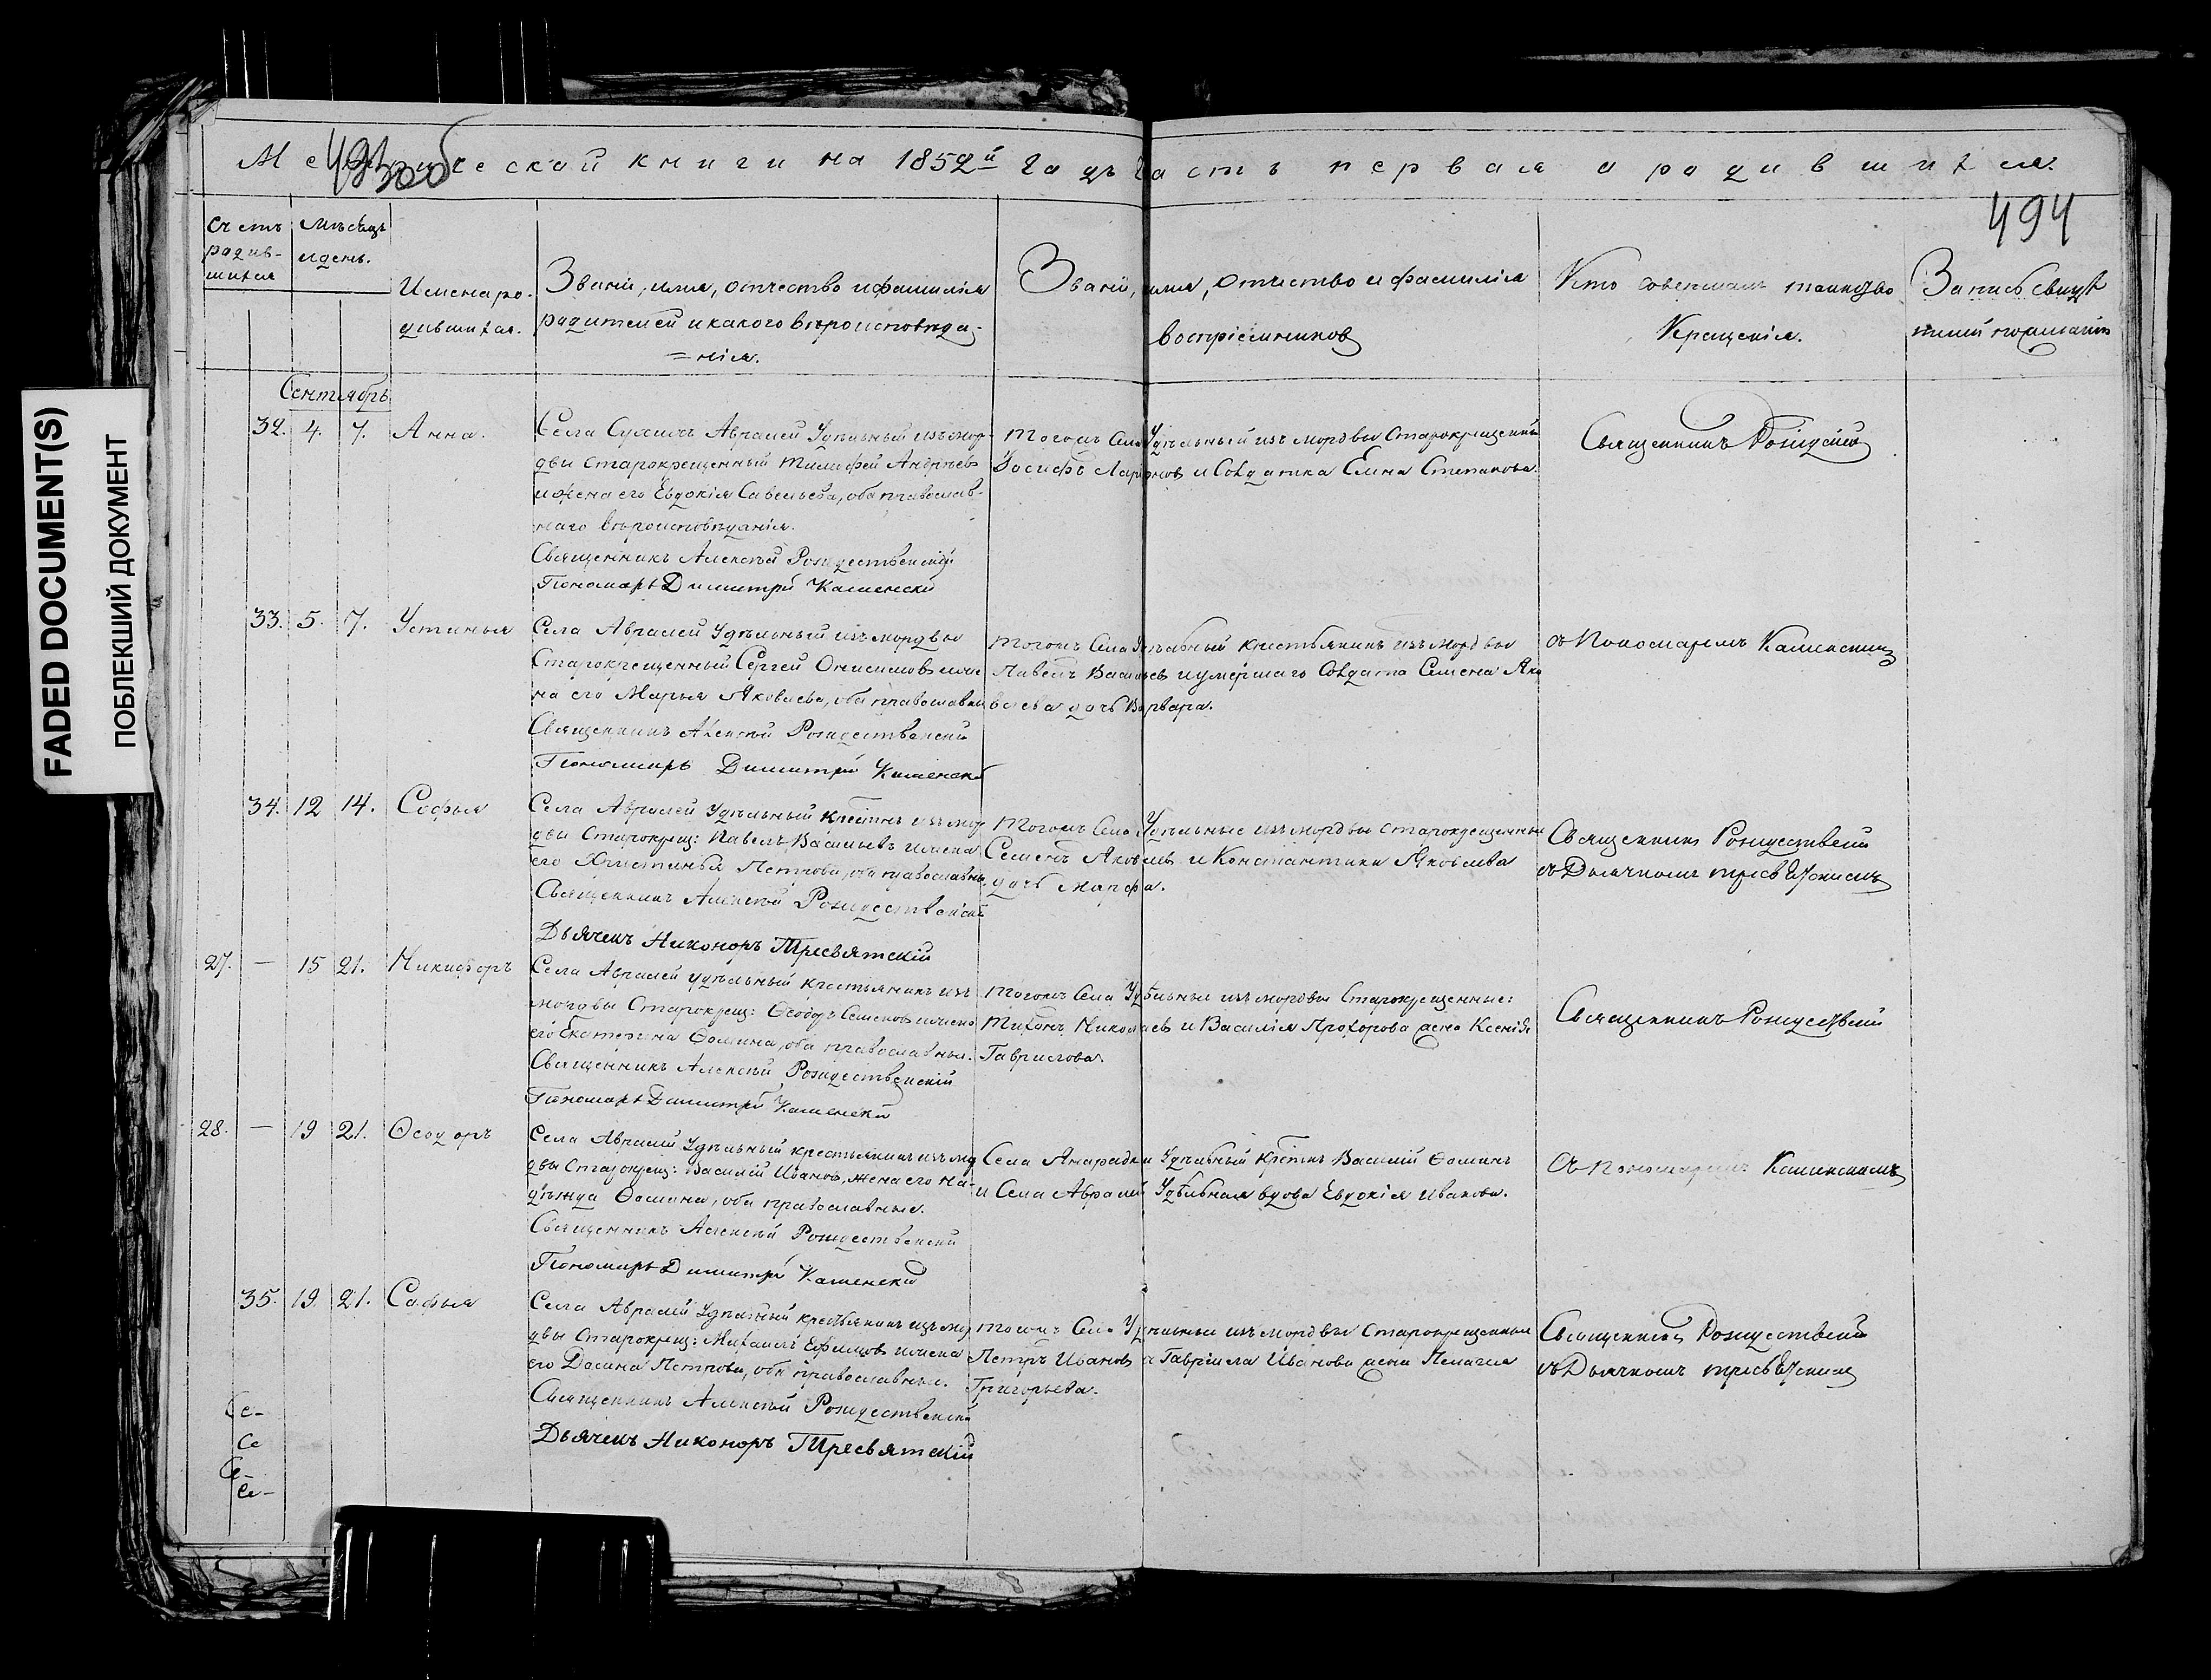 FADED DOCUMENT(S)
ПОБЛЕКШИЙ ДОКУМЕНТ
493 об
Метрической книги на 1852й Годъ Часть первая о родившихся.
494
Счетъ родив-
шихся
Мѣсяцъ
и день.
Имена ро-
дившихся.
Званiе, имя, отчество и фамилiя
родителей и какого вѣроисповѣда-
=нiя.
Званiе, имя, отчество и фамилiя
воспрiемниковъ
Кто совершалъ таинство
Крещенiя.
Сентябрь
32. 4. 7. Анна.
Села Аврамей Удѣльный изъ мор-
двы старокрещенный Тимофей Андреевъ
и жена его Евдокiя Савельева, оба православ-
наго вѣроисповѣданiя.
Священникъ Алексѣй Рождественскiй
Пономарь Димитрiй Каменскiй
Тогожъ Села Удѣльный изъ мордвы Старокрещенный
Iосифъ Ларiоновъ и Солдатка Елена Степанова.
Священникъ
33. 5. 7. Устинья
Села Аврамей Удѣльный изъ мордвы
Старокрещенный Сергей Онисимовъ и же-
на его Марья Яковлева, оба православные
Священникъ Алексѣй Рождественскiй
Пономарь Димитрiй Каменскiй
Тогожъ Села Удѣльный крестьянинъ изъ мордвы
Павелъ Васильевъ и умершаго Солдата Семена Яко
влева дочь Варвара.
съ Пономаремъ Каменскимъ
34. 12 14. Софья
Села Аврамей Удѣльный крестьянинъ изъ мор
двы Старокрещ: Павелъ Васильевъ и жена
его Христинья Петрова, оба православные
Священникъ Алексѣй Рождественскiй
Дьячекъ Никоноръ Тресвятскiй
Тогожъ Села Удѣльные изъ мордвы старокрещенные
Семенъ Яковлевъ и Константина Яковлева
дочь Марфа.
Священникъ Рождественскiй
съ Дьячкомъ Тресвятскимъ
27. — 15 21. Никифоръ
Села Аврамей Удѣльный крестьянинъ изъ
мордвы Старокрещ: Ѳеодоръ Семеновъ и жена
его Екатерина Ѳомина, оба православные.
Священникъ Алексѣй Рождественскiй
Пономарь Димитрiй Каменскiй
Тогожъ Села Удѣльные изъ мордвы Старокрещенные:
Тихонъ Николаевъ и Василiя Прохорова жена Ксенiя
Гаврилова.
Священникъ Рождественскiй
28. — 19 21. Ѳеодоръ
Села Аврамей Удѣльный крестьянинъ изъ мор
двы Старокрещ: Василiй Ивановъ, жена его На-
дѣжда Ѳомина, оба православные.
Священникъ Алексѣй Рождественскiй
Пономарь Димитрiй Каменскiй
Села Василiй Ѳоминъ
и Села Аврамей Удѣльная вдова Евдокiя Иванова.
Съ Пономаремъ Каменскимъ
35. 19. 21. Софья
Села Аврамей Удѣльный крестьянинъ изъ мор
двы Старокрещ: Михаилъ Ефимовъ и жена
его Домна Петрова, оба православные.
Священникъ Алексѣй Рождественскiй
Дьячекъ Никоноръ Тресвятскiй
Тогожъ Села Удѣльные изъ мордвы Старокрещенные
Петръ Ивановъ и Гаврiила Иванова жена Пелагия
Григорьева.
Священникъ Рождественскiй
съ Дьячкомъ Тресвятскимъ
Се-
Се
Се-
Се-